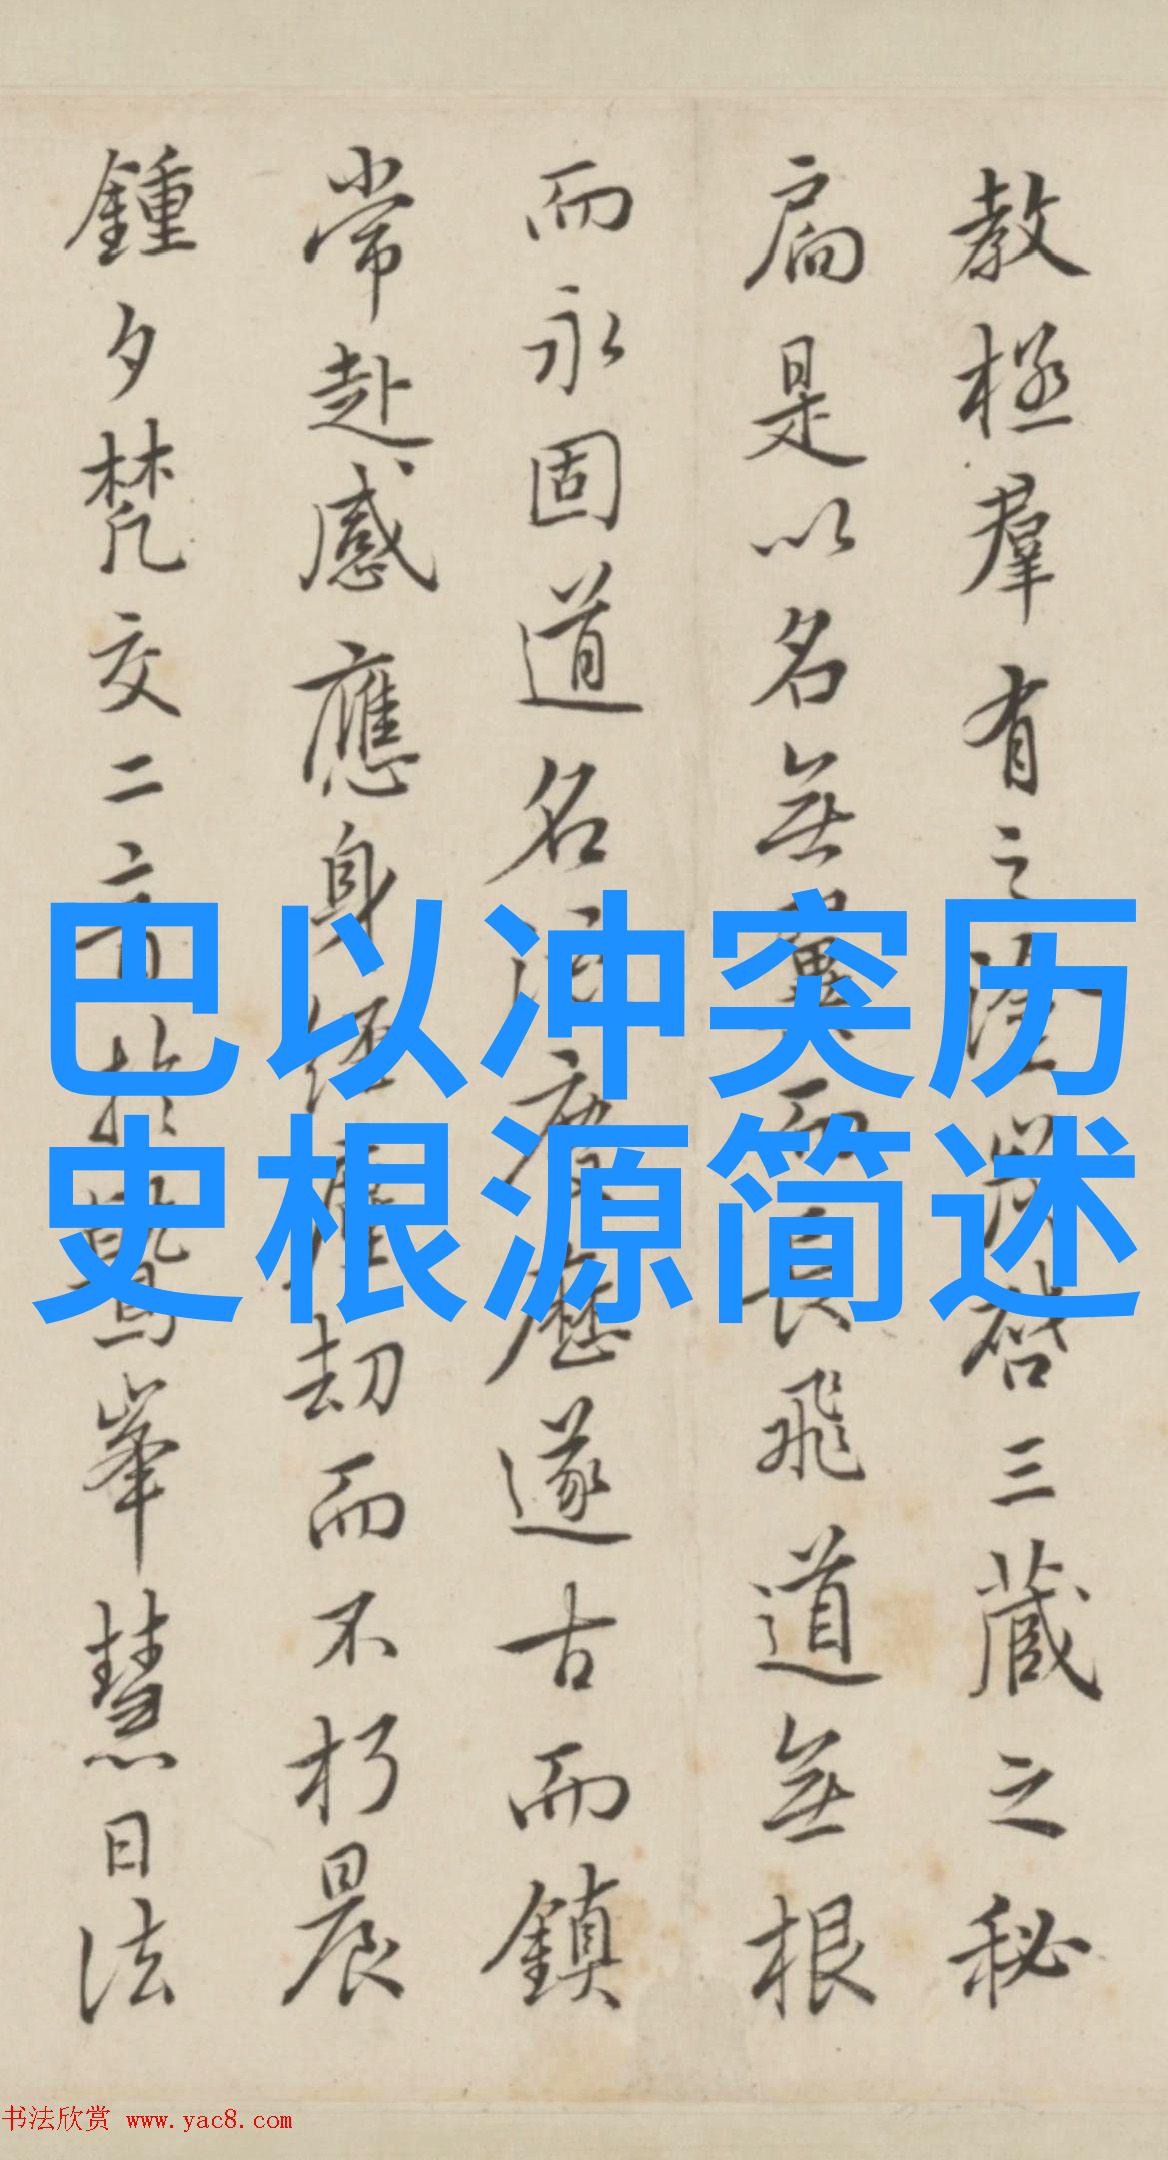 巴以冲突历
史根源简述
教拯羣有之塗炭啓三藏之秘
扃是以名無翼而長飛道無根
而永固道名流慶歷遂古而鎮
常赴感應身經塵劫而不朽晨
鍾夕梵交二音於鷲峯慧日法
书法欣赏 www.yac8.com